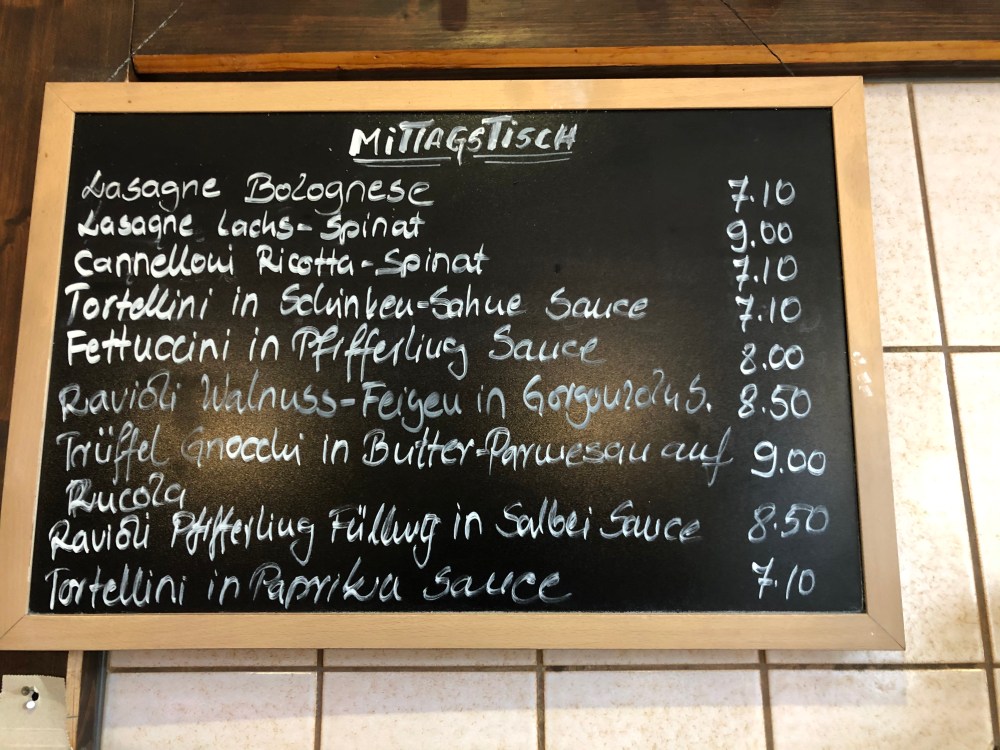 MITTAGSTISCH
Lasagne Bolognese 7.10
Lasagne Lachs-Spinat 9.00
Cannelloni Ricotta-Spinat 7.10
Tortellini in Schinken-Sahne Sauce 7.10
Fettuccini in Pfifferling Sauce 8.00
Ravioli Walnuss-Feigen in Gorgonzola S. 8.50
Trüffel Gnocchi in Butter-Parmesan auf 9.00
Rucola
Ravioli Pfifferling Füllung in Salbei Sauce 8.50
Tortellini in Paprika Sauce 7.10